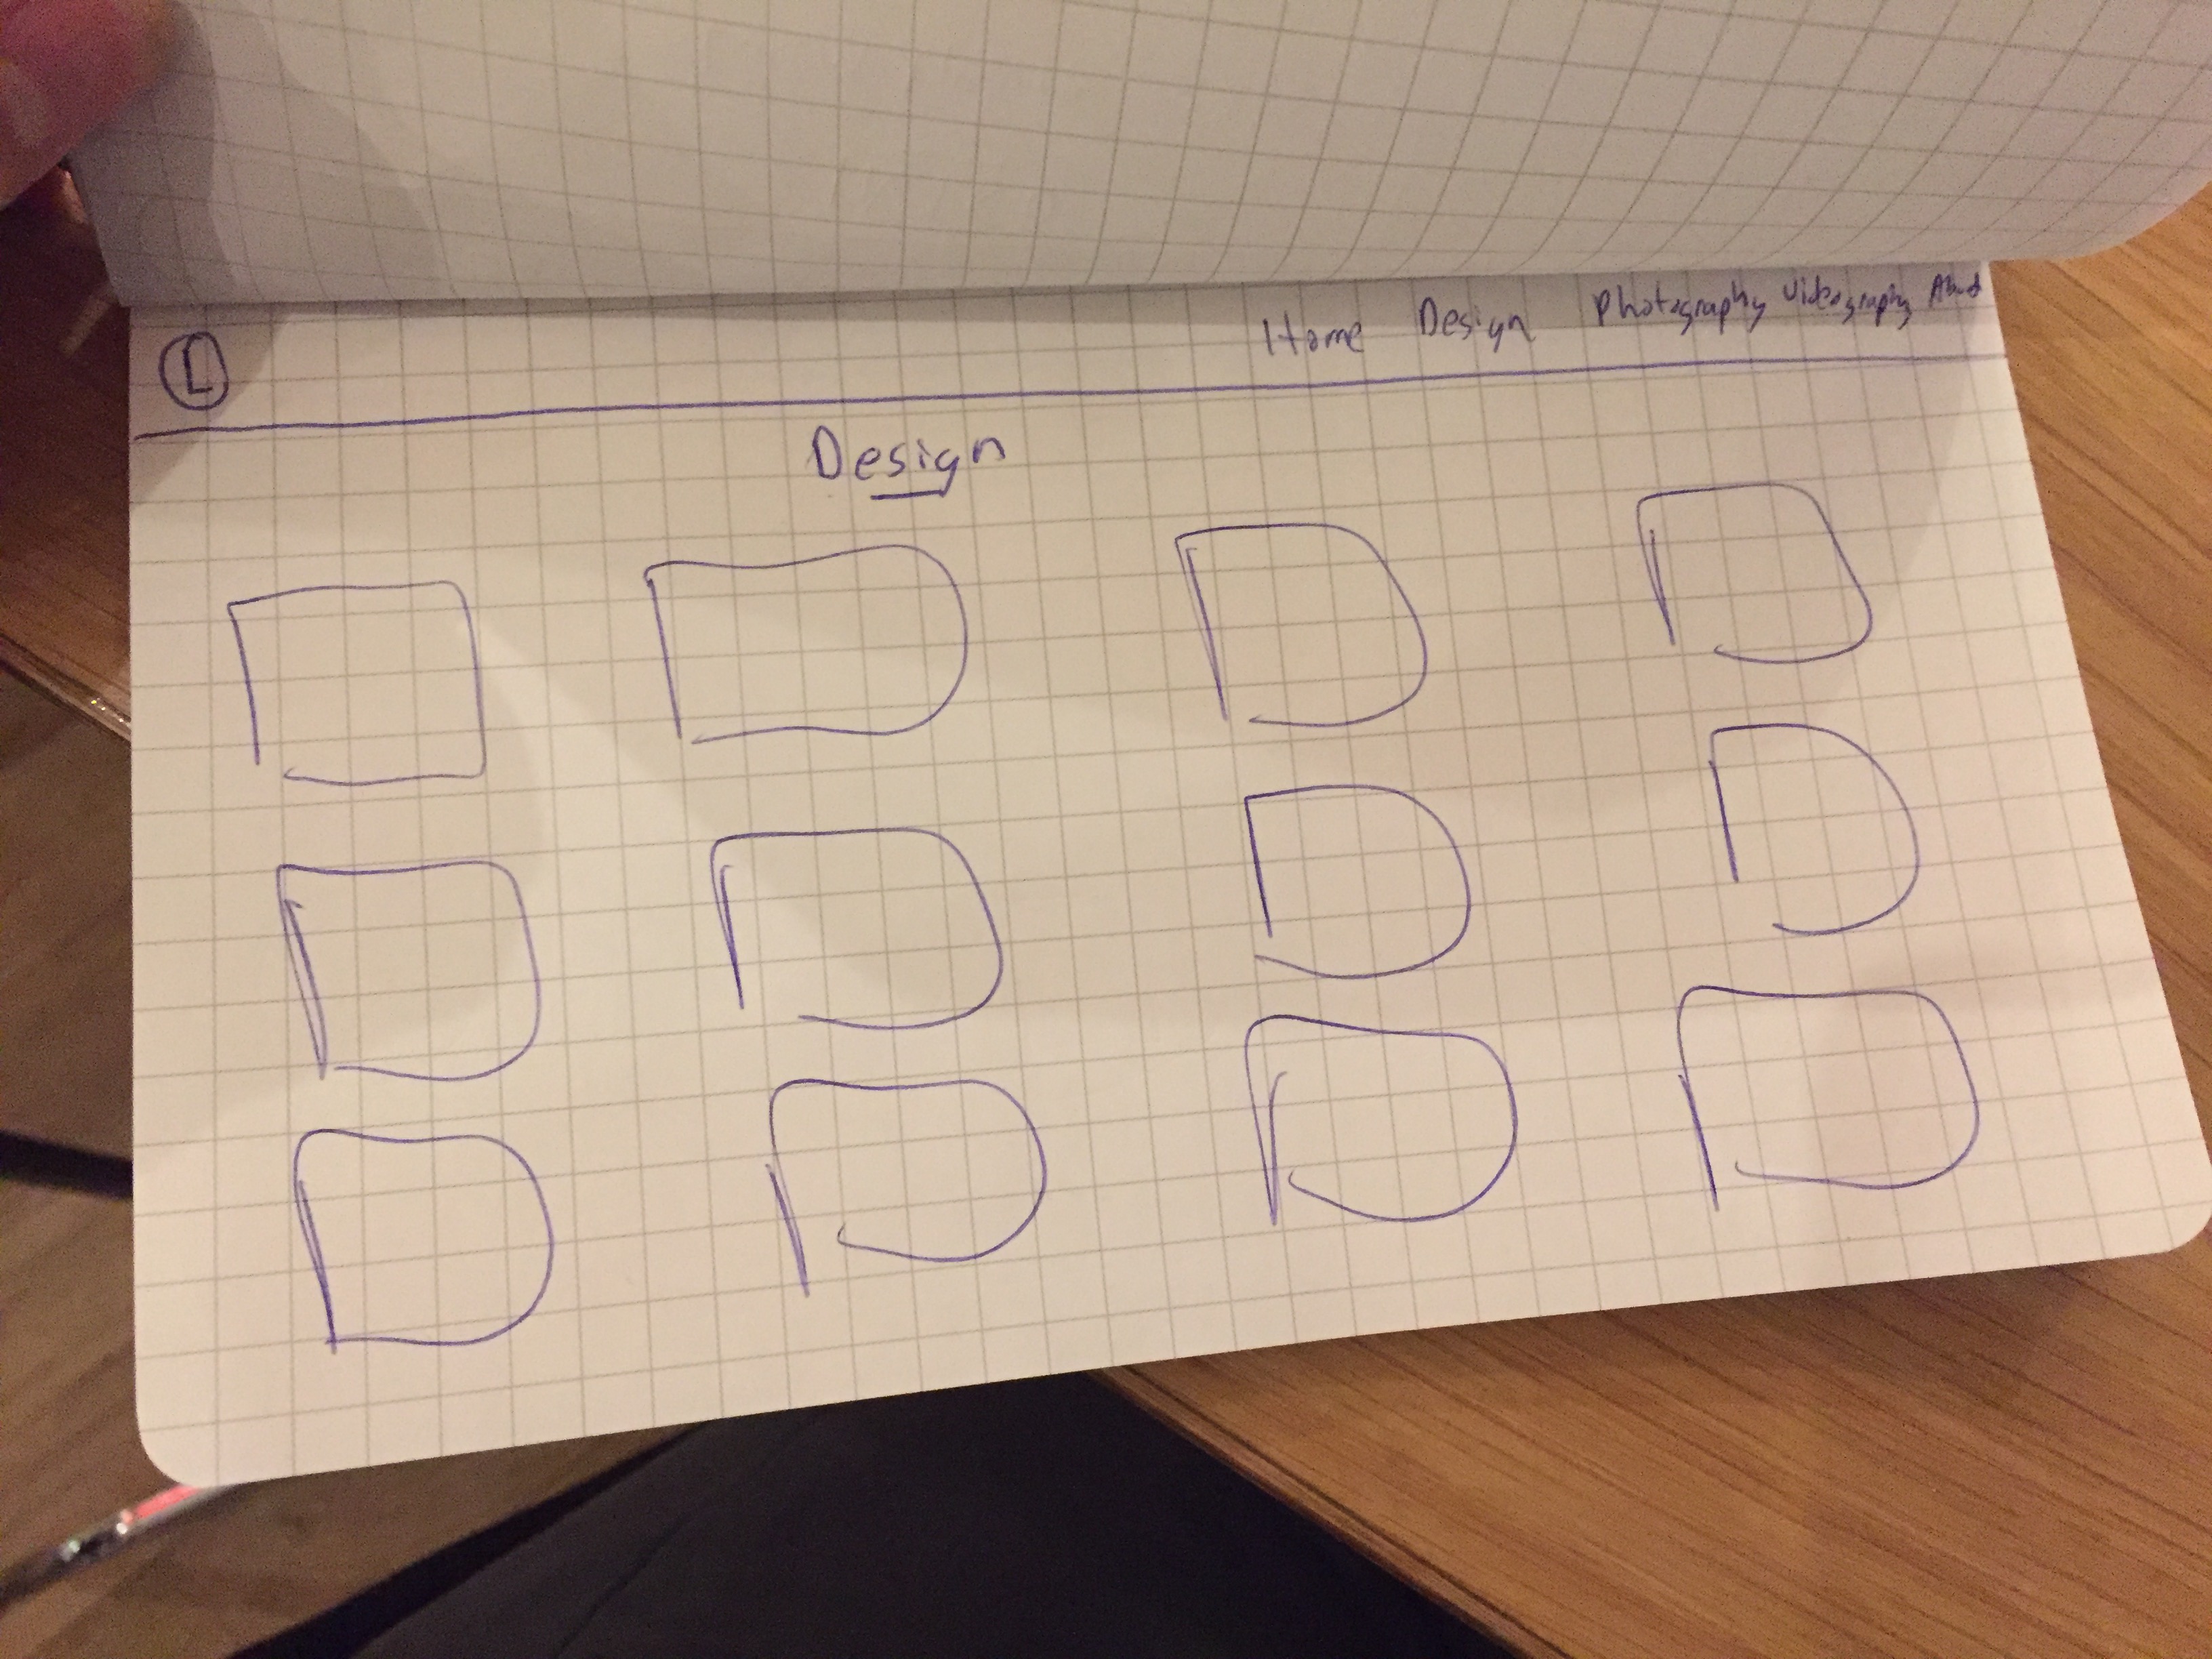 L Home Design Photography Videography About
Design